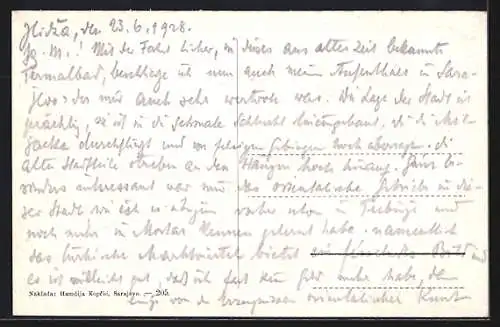 Ilidža, den 23.6.1928.
Lg. M.! Mit der Fahrt hieher, in dieses aus alter Zeit bekannte
Termalbad, beschliesse ich nun auch meinen Aufenthalt in Sara-
jevo, der mir auch sehr wertvoll war. Die Lage der Stadt ist
prächtig, sie ist in die schmale Schlucht hineingebaut, die die Mil-
jacka durchfliesst und von felsigen Gebirgen hoch überragt. Die
alten Stadtteile streben an den Hängen hoch hinauf. Ganz be-
sonders interessant war mir das orientalische Getriebe in die-
ser Stadt wie ich es übrigens vorher schon in Trebinje und
noch mehr in Mostar kennen gelernt habe. namentlich
das türkische Marktviertel bietet ein fesselndes Bild und
es ist vielleicht gut, daß ich fast kein Geld mehr habe, denn
einige von den Erzeugnissen orientalischer Kunst
Naklada: Hamdija Kopčić, Sarajevo. — 205.